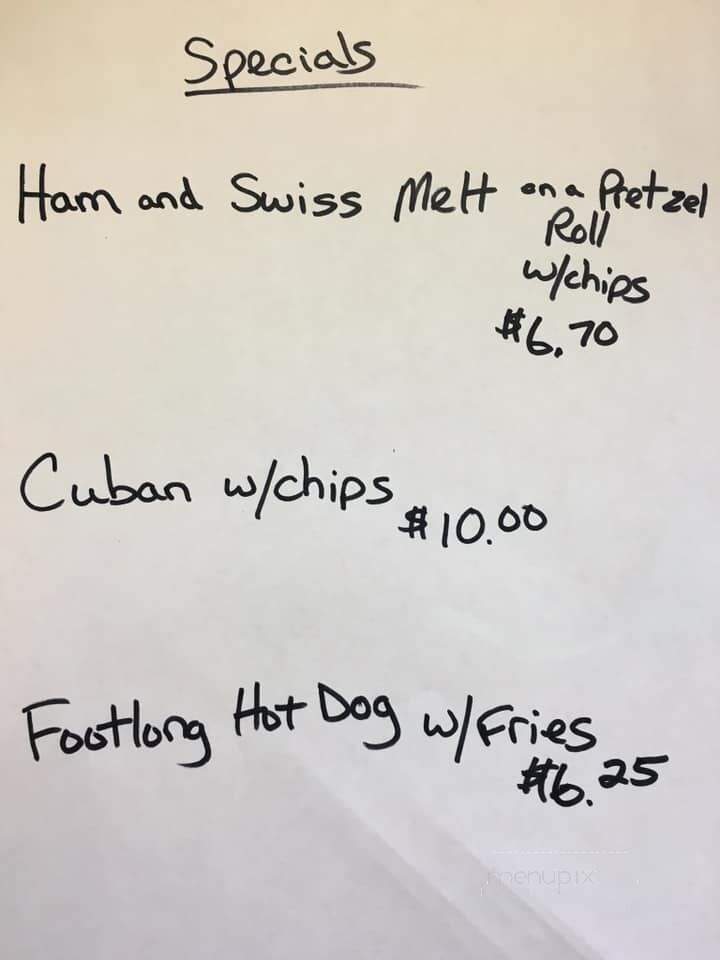 Specials
Ham and Swiss Melt on a Pretzel
Roll
w/chips
$6.70
Cuban w/chips
$10.00
Footlong Hot Dog w/Fries
$6.25
menupix